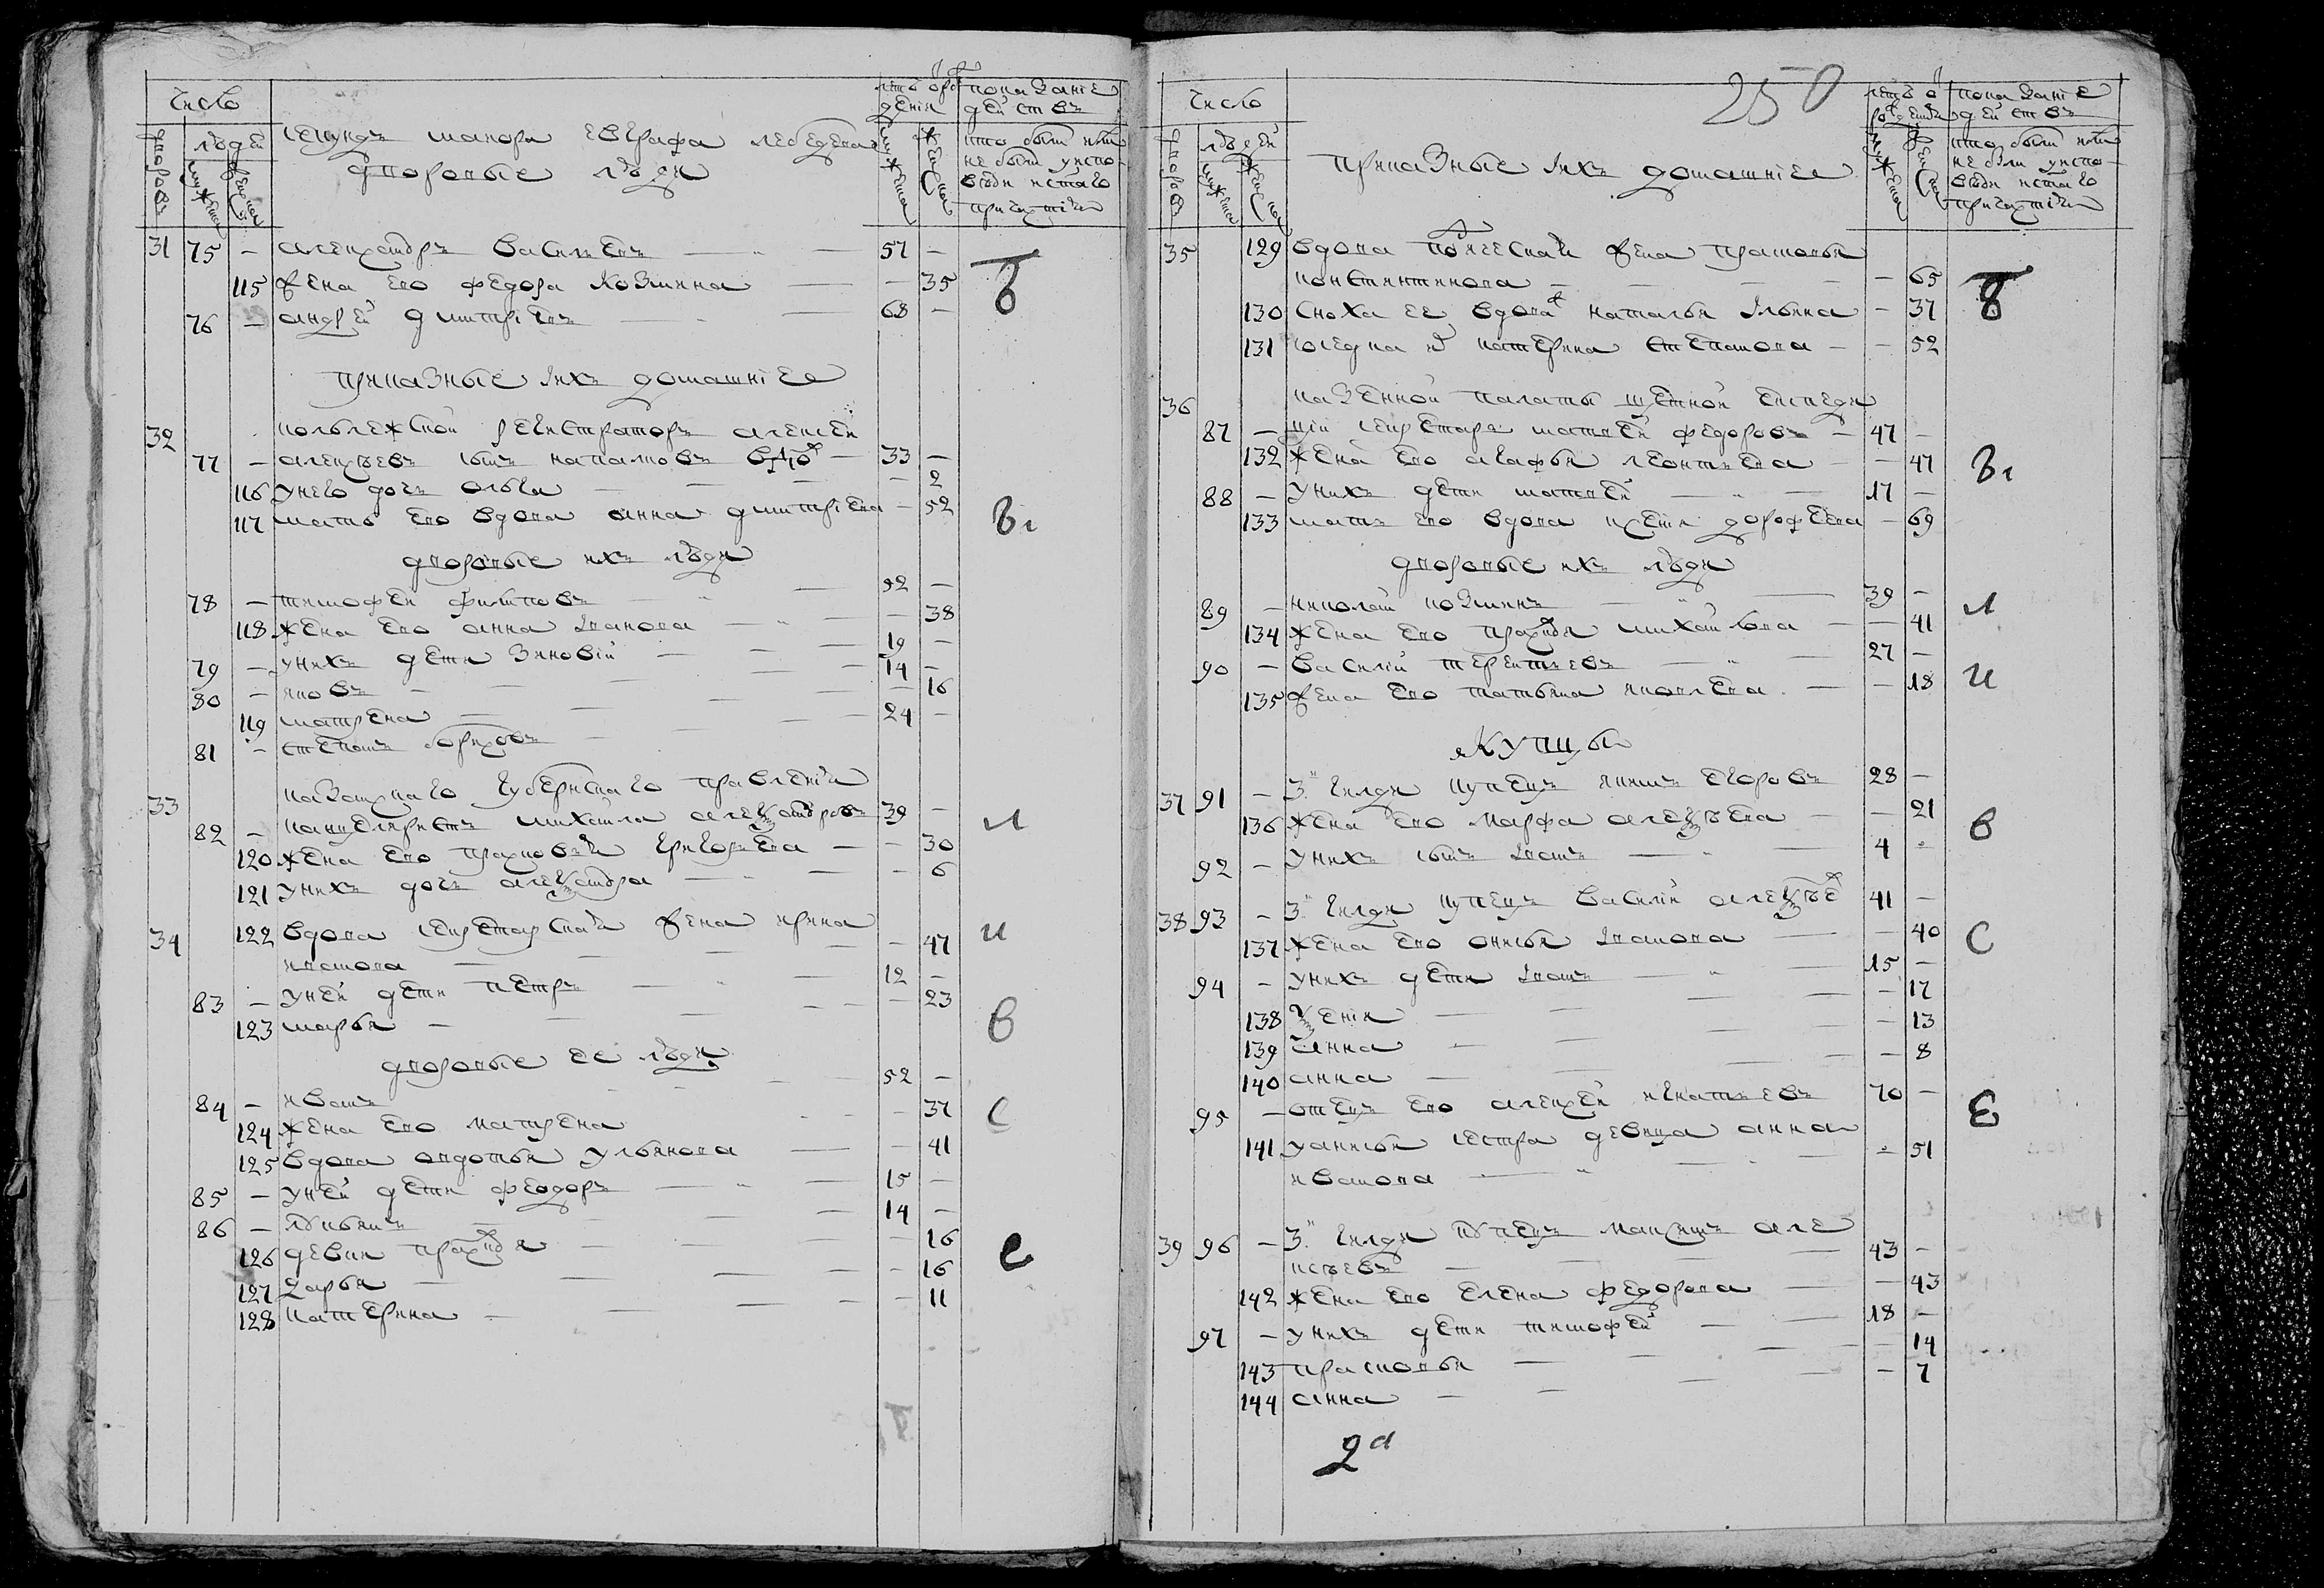 Число
людей
секундъ маиора евграфа лебедева
дворовые люди
летъ о рож
дения
показание
действъ
кто были или
не были у испо
веди и стаго
причастия
31 75 – александръ василиевъ – 57 –
115 жена его федора козмина – – 35
76 – андрей дмитриевъ – 68 –
приказные и ихъ домашние
32 колълежской регистраторъ алексей
77 – алексѣевъ сынъ вдовъ – 33 –
116 у него дочь ольга – – 2
117 мать его вдова анна дмитриева – 52
дворовые ихъ люди
78 – тимофей филиповъ – 52 –
118 жена его анна иванова – – 38
79 – у нихъ дети зиновий – 19 –
80 – яковъ – 14 –
119 матрена – – 16
81 – степанъ борисовъ – 24 –
33 казанскаго губернскаго правления
82 – канцеляристъ михайла александровъ 39 –
120 жена его прасковья григорьева – – 30
121 у нихъ дочь александра – – 6
34 122 вдова секретарская жена ирина
иванова – – 47
83 – у ней дети петръ – 12 –
123 марья – – 23
дворовые ее люди
84 – иванъ 52 –
124 жена его матрена – 37
125 вдова авдотья ульянова – – 41
85 – у ней дети феодоръ – 15 –
86 – лукьянъ – 14 –
126 девки праскѡвья – – 16
127 дарья – – 16
128 катерина – – 11
250
Число
людей
приказные и ихъ домашние
летъ о
рождения
показание
действъ
кто были или
не были у испо
веди и стаго
причастия
35 129 вдова жена прасковья
константинова – – 65
130 сноха ее вдова наталья ильина – 37
131 катерина степанова – – 52
36 казенной палаты щетной експеди
87 – ции секретарь матвей федоровъ – 47 –
132 жена его агафья леонтьева – – 47
88 – у нихъ дети матвей – 17 –
133 мать его вдова дорофеева – 69
дворовые ихъ люди
89 – николай козминъ – 39 –
134 жена его михайлова – – 41
90 – василий терентьевъ – 27 –
135 жена его татьяна яковлева – – 18
Купцы
37 91 – 3й гилди купецъ якимъ егоровъ 28 –
136 жена его марфа алексѣева – – 21
92 – у нихъ сынъ иванъ – 4 –
38 93 – 3й гилди купецъ василий алексѣе 41 –
137 жена его анисья иванова – – 40
94 – у нихъ дети иванъ – 15 –
138 ксения – – 17
139 анна – – 13
140 анна – – 8
95 – отецъ его алексей игнатьевъ 70 –
141 у анисьи сестра девица анна
иванова – – 51
39 96 – 3й гилди купецъ максимъ але
ксѣевъ – 43 –
142 жена его елена федорова – – 43
97 – у нихъ дети тимофей – 18 –
143 прасковья – – 14
144 анна – – 7